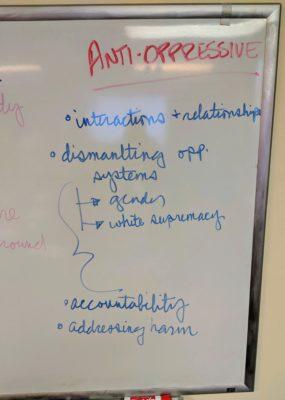 ANTI-OPPRESSIVE
• interactions + relationships
• dismanlting opp.
systems
gender
white supremacy
• accountability
• addressing harm
ound